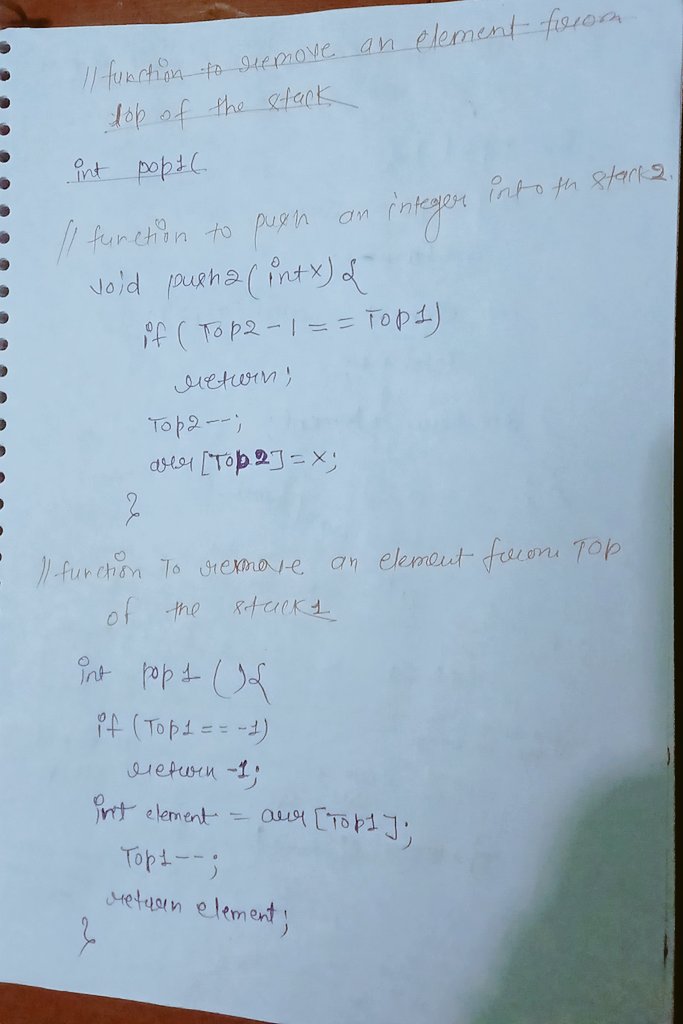 // function to remove an element from
top of the stack
int pop1(
// function to push an integer into th stack2.
void push2(int x) {
if ( Top2 - 1 == Top1)
return;
Top2--;
arr [Top2] = x;
}
// function To remove an element from Top
of the stack1
int pop1 () {
if (Top1 == -1)
return -1;
int element = arr [Top1];
Top1--;
return element;
}